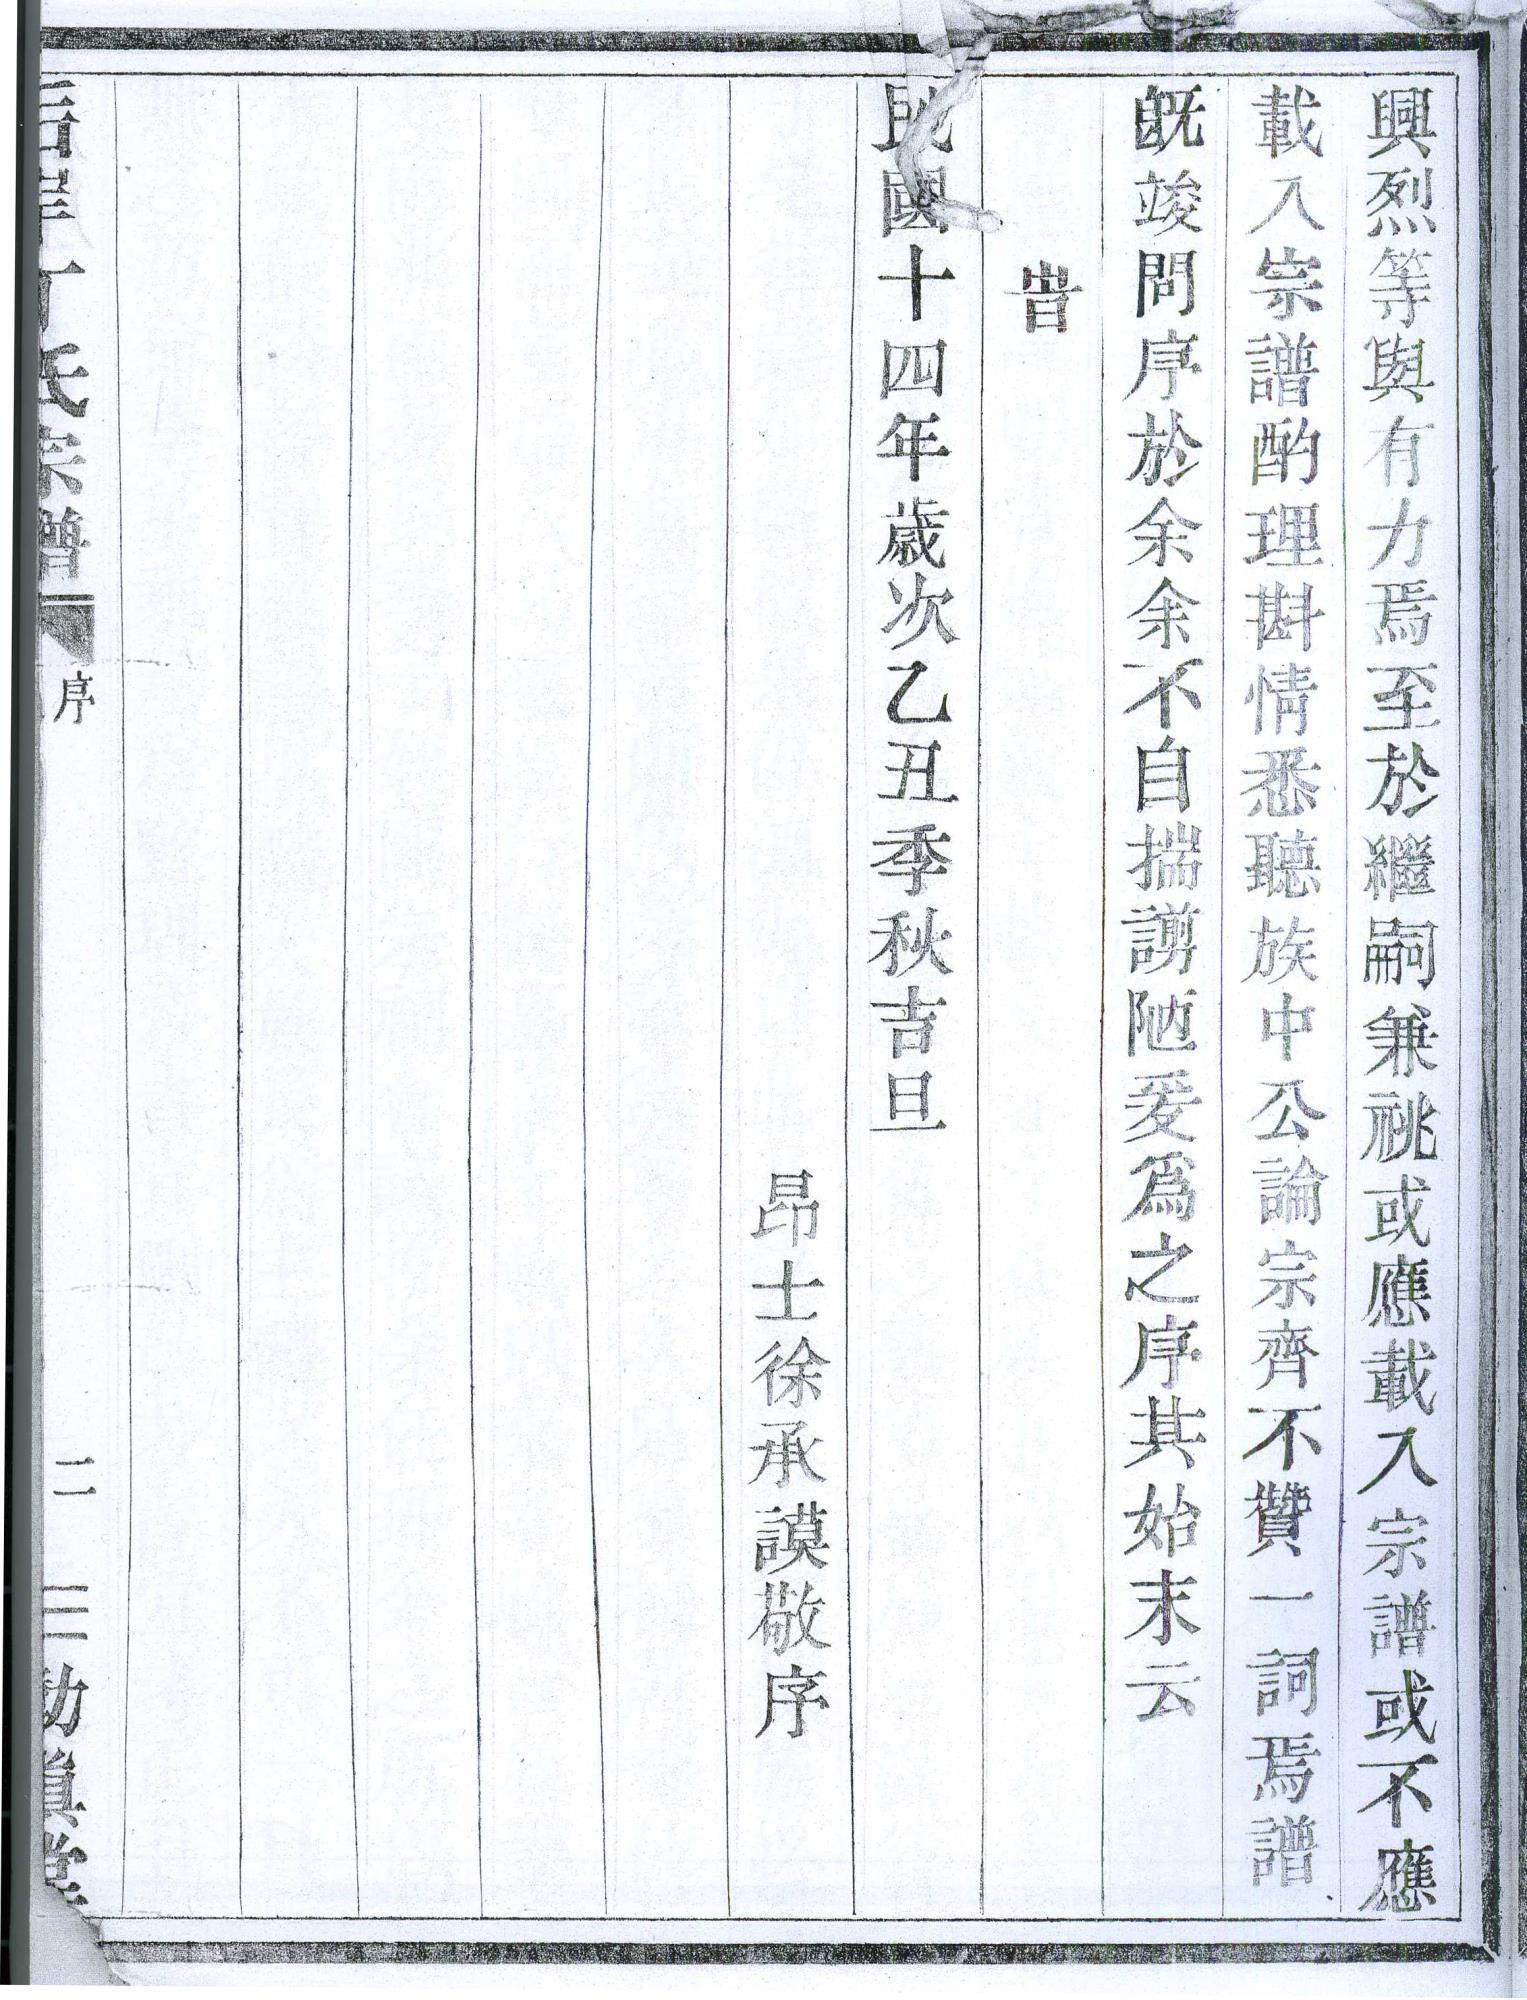 興烈等與有力焉至於繼嗣兼祧或應載入宗譜或不應
載入宗譜酌理斟情悉聽族中公論宗齊不贊一詞焉譜
旣竣問序於余余不自揣謭陋爰爲之序其始末云
旹
民國十四年歲次乙丑季秋吉旦
昂士徐承謨敬序
丁氏宗譜
序
二
三
勛眞堂